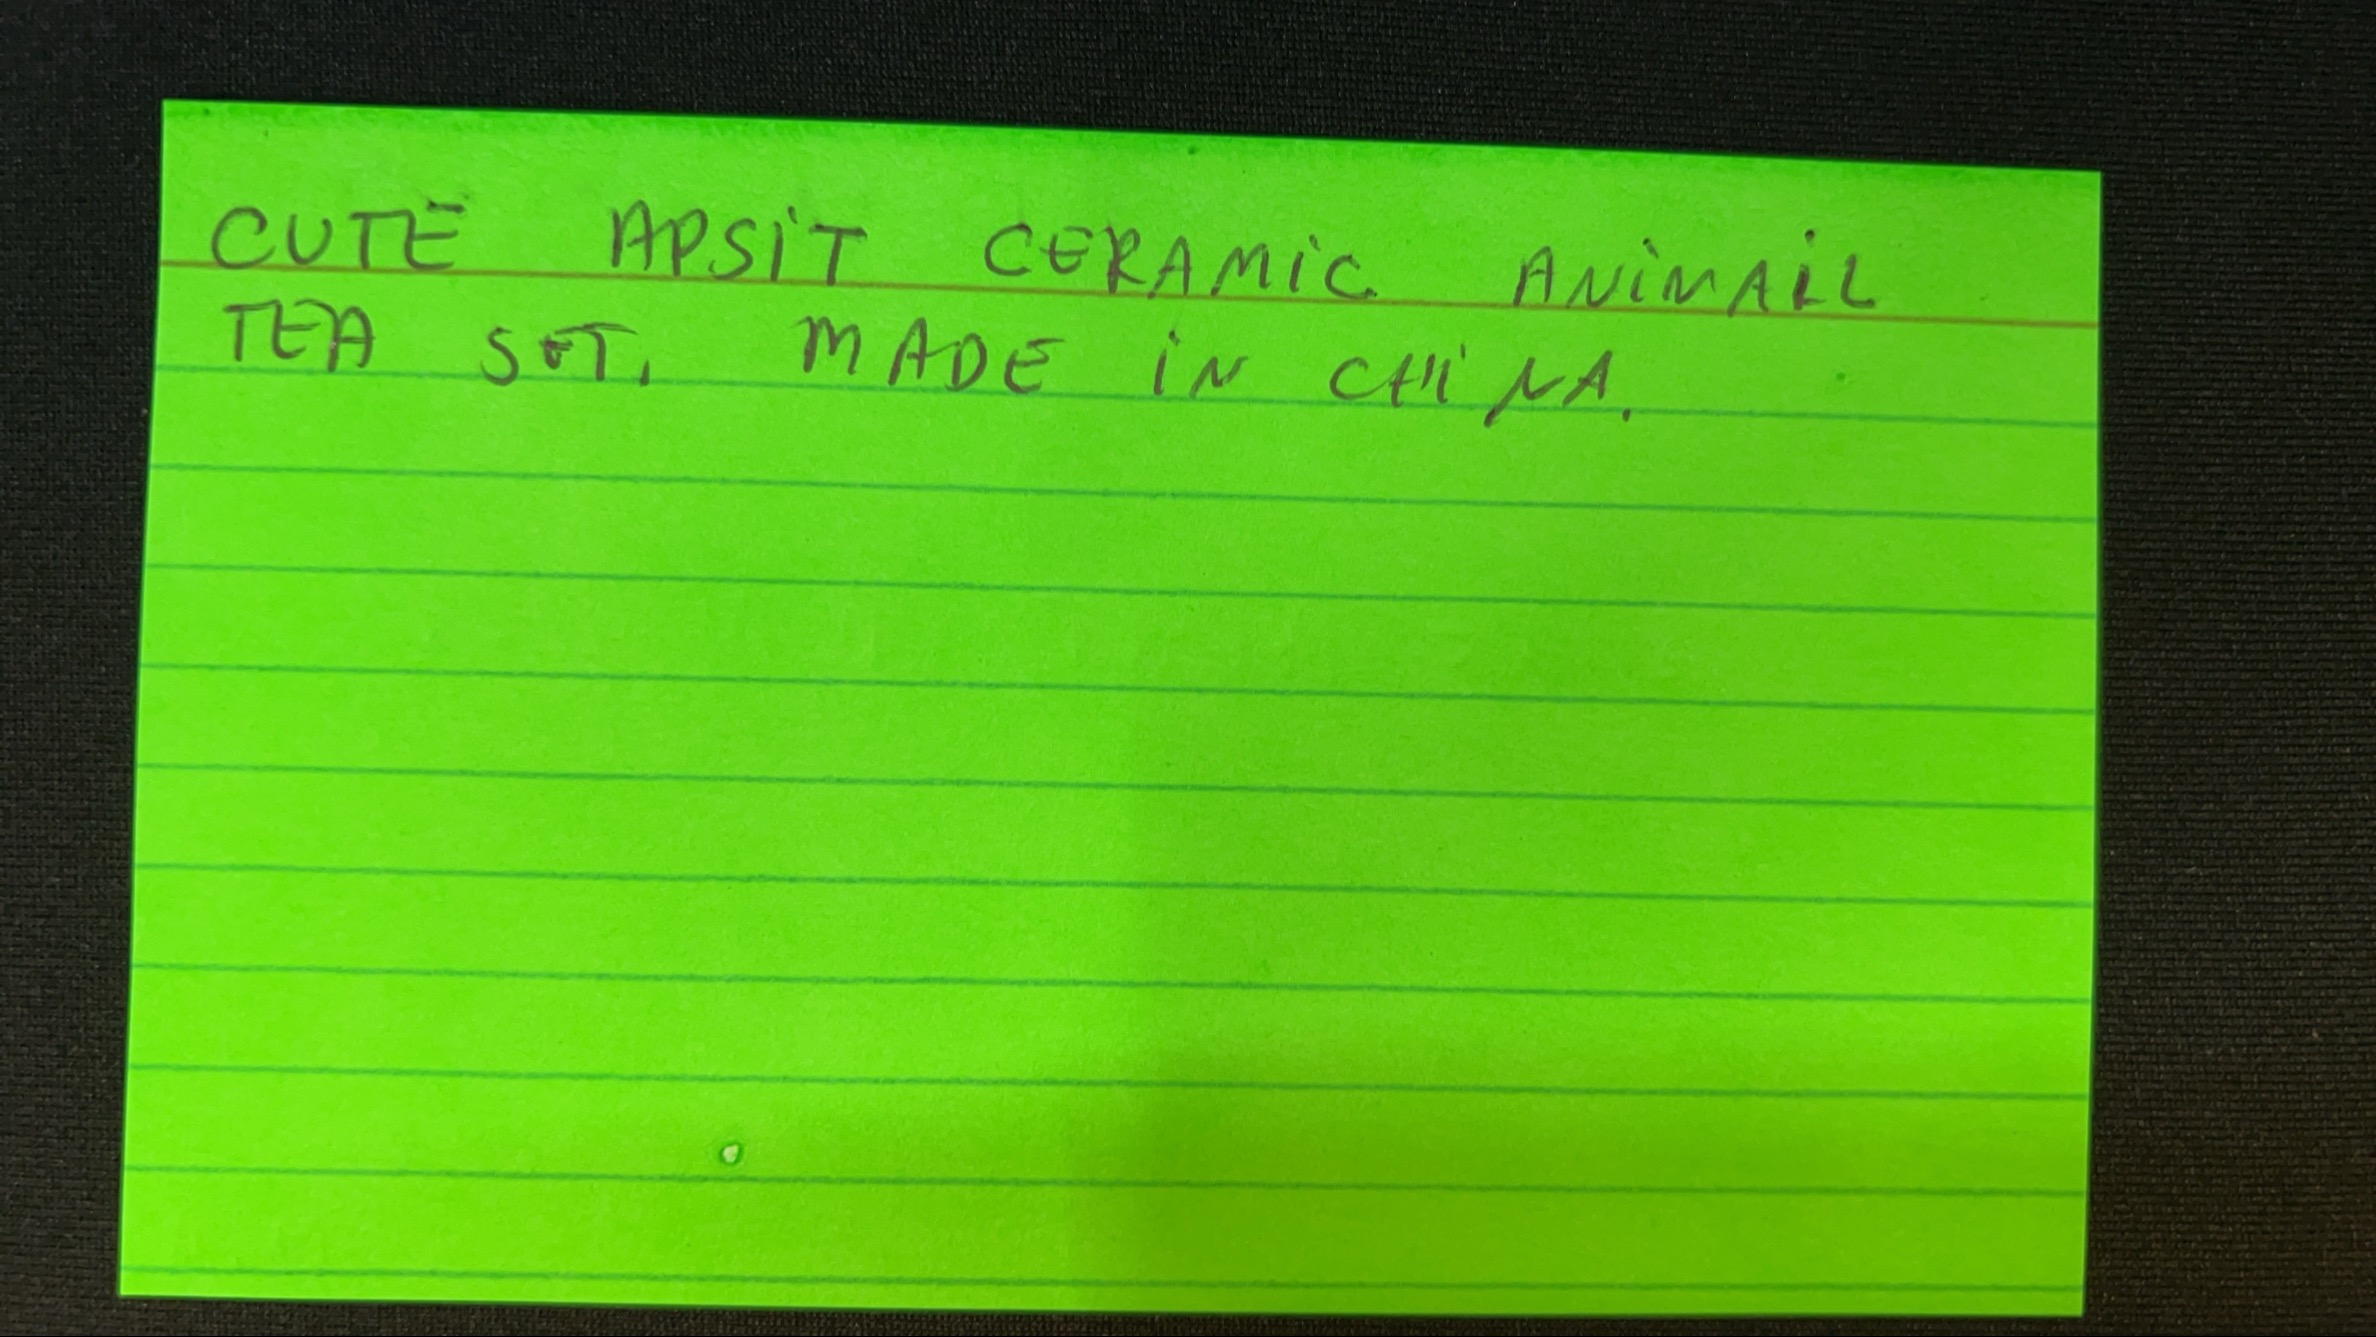 CUTE APSiT CERAMiC ANiMAiL
TEA SET. MADE iN CHiNA.